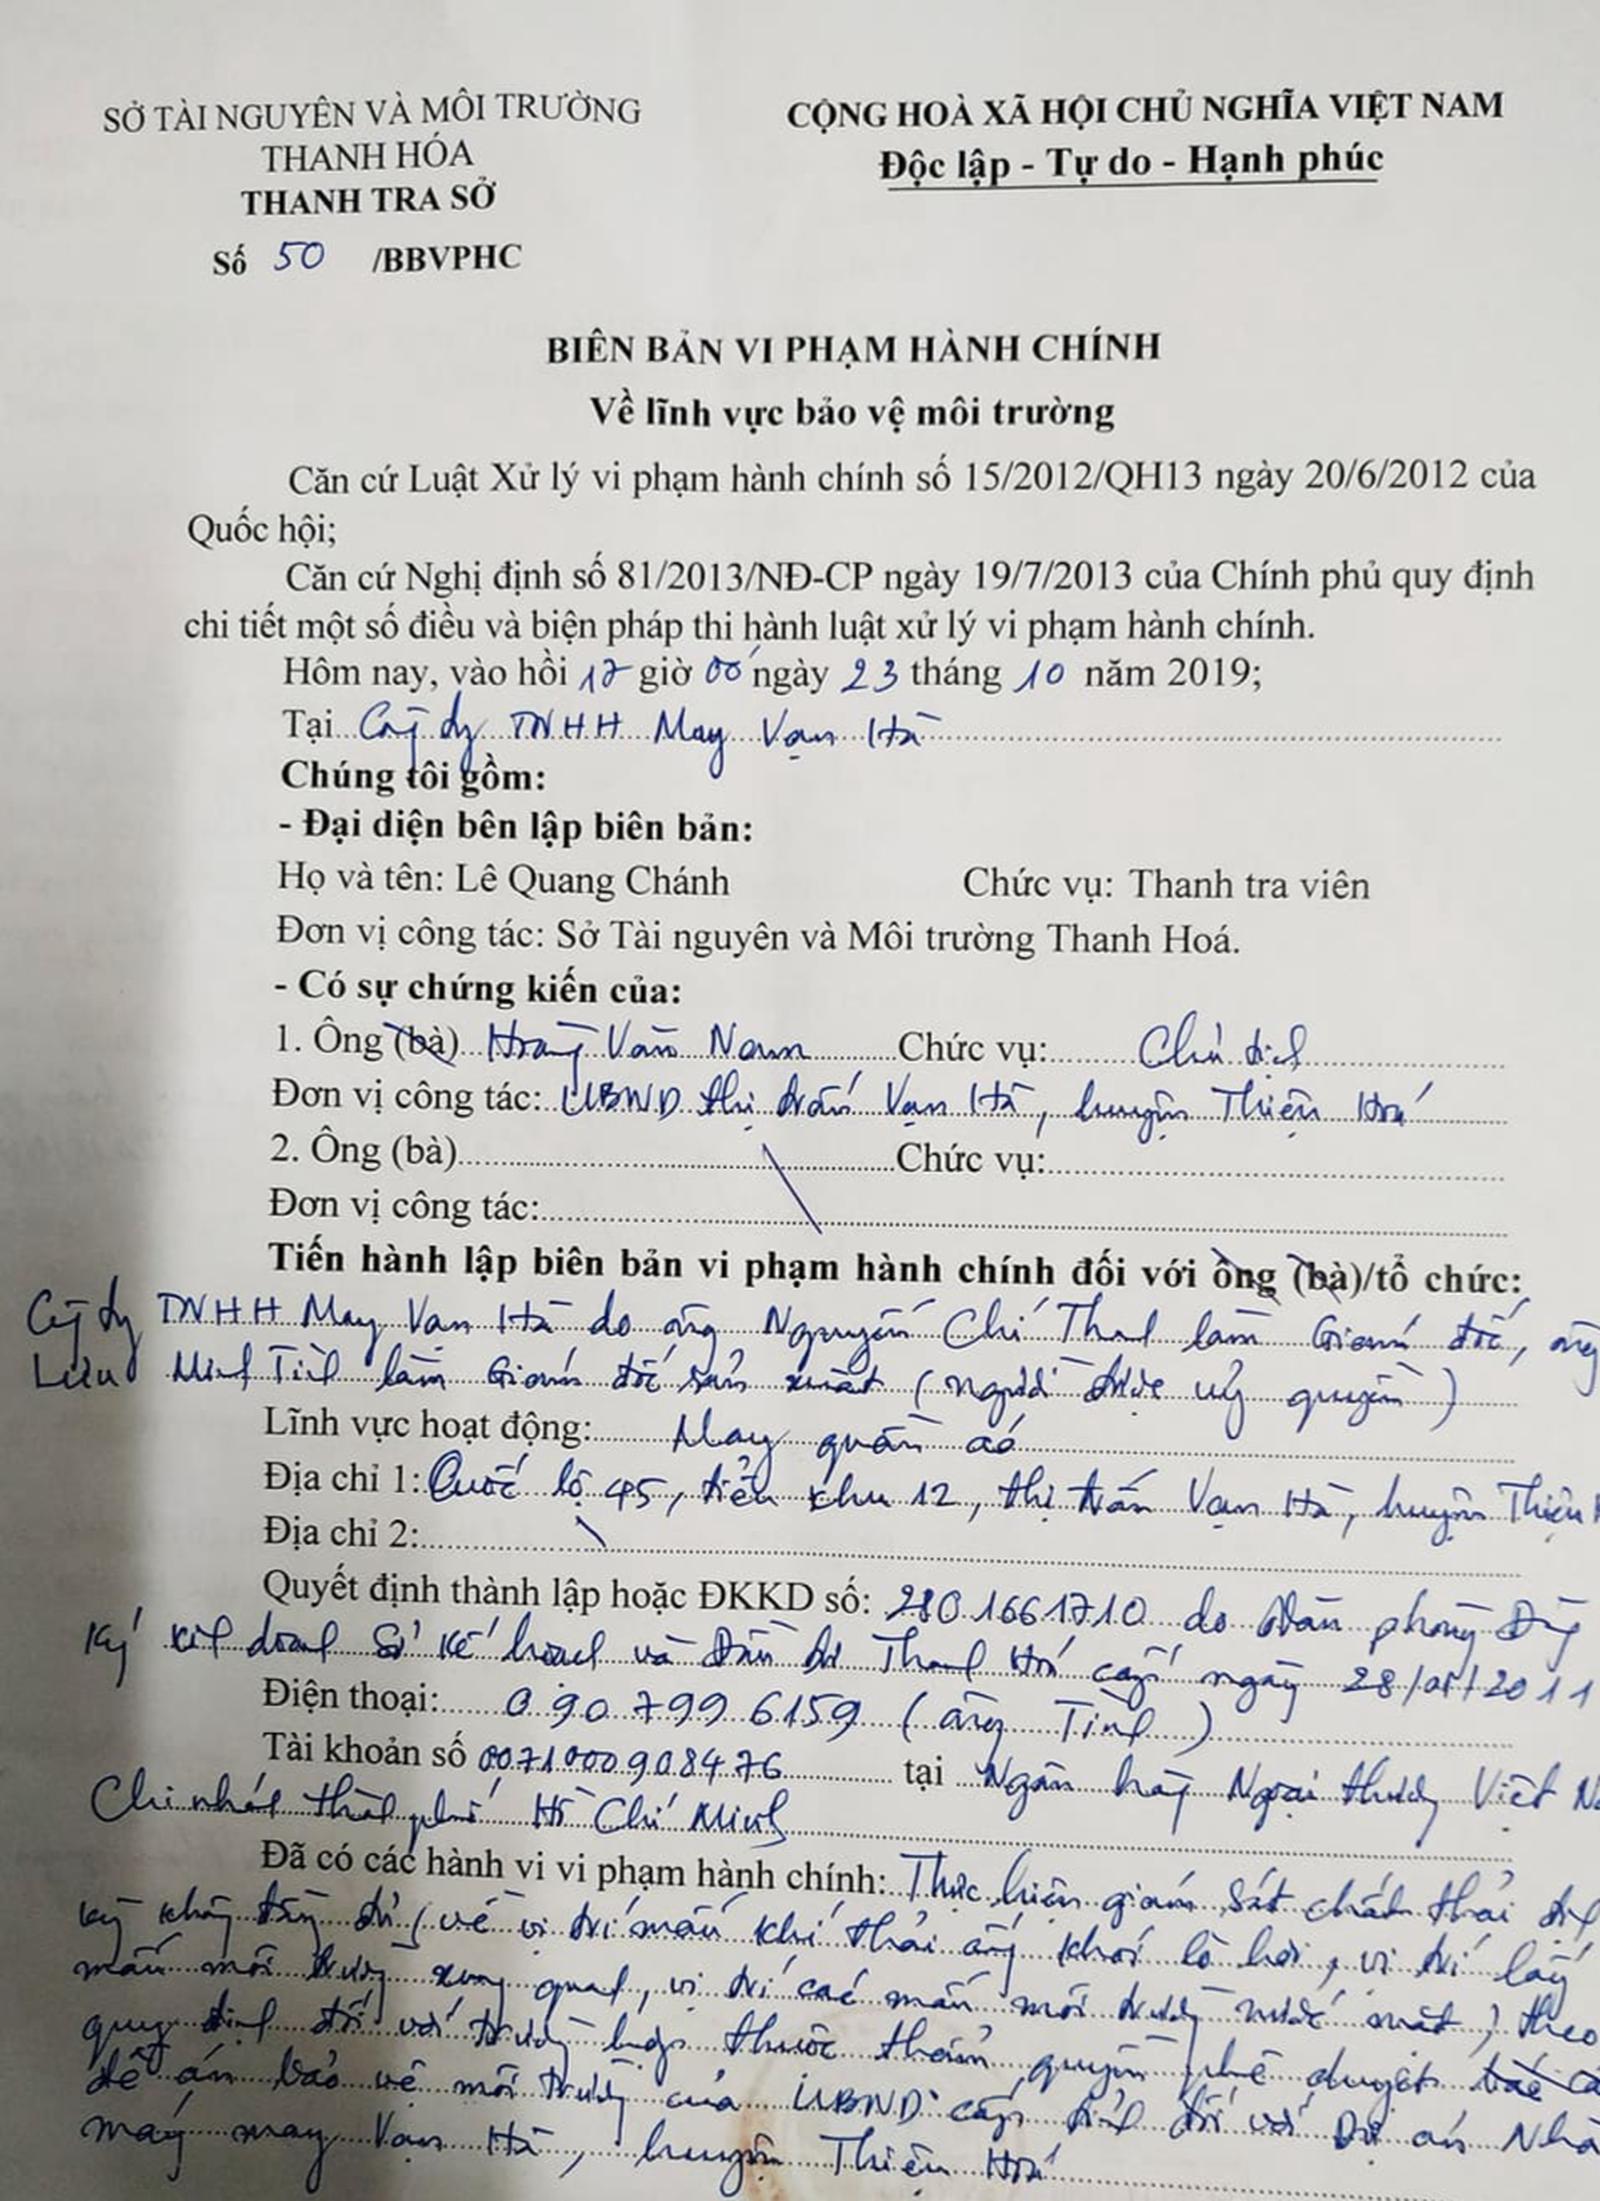 SỞ TÀI NGUYÊN VÀ MÔI TRƯỜNG
THANH HÓA
THANH TRA SỞ
Số 50 /BBVPHC
CỘNG HOÀ XÃ HỘI CHỦ NGHĨA VIỆT NAM
Độc lập - Tự do - Hạnh phúc
BIÊN BẢN VI PHẠM HÀNH CHÍNH
Về lĩnh vực bảo vệ môi trường
Căn cứ Luật Xử lý vi phạm hành chính số 15/2012/QH13 ngày 20/6/2012 của
Quốc hội;
Căn cứ Nghị định số 81/2013/NĐ-CP ngày 19/7/2013 của Chính phủ quy định
chi tiết một số điều và biện pháp thi hành luật xử lý vi phạm hành chính.
Hôm nay, vào hồi 17 giờ 00 ngày 23 tháng 10 năm 2019;
Tại Công ty TNHH May Vạn Hà
Chúng tôi gồm:
- Đại diện bên lập biên bản:
Họ và tên: Lê Quang Chánh Chức vụ: Thanh tra viên
Đơn vị công tác: Sở Tài nguyên và Môi trường Thanh Hoá.
- Có sự chứng kiến của:
1. Ông (bà) Hoàng Văn Nam Chức vụ: Chủ tịch
Đơn vị công tác: UBND thị trấn Vạn Hà, huyện Thiệu Hoá
2. Ông (bà) Chức vụ:
Đơn vị công tác:
Tiến hành lập biên bản vi phạm hành chính đối với ông (bà)/tổ chức:
Công ty TNHH May Vạn Hà do ông Nguyễn Chí Thanh làm Giám đốc, ông
Lưu Minh Tình làm Giám đốc sản xuất (người được uỷ quyền)
Lĩnh vực hoạt động: May quần áo
Địa chỉ 1: Quốc lộ 45, tiểu khu 12, thị trấn Vạn Hà, huyện Thiệu
Địa chỉ 2:
Quyết định thành lập hoặc ĐKKD số: 2801661710 do Văn phòng Đăng
ký kinh doanh Sở Kế hoạch và Đầu tư Thanh Hoá cấp ngày 28/01/2011
Điện thoại: 090 799 6159 (ông Tình)
Tài khoản số 0071000908476 tại Ngân hàng Ngoại thương Việt
Chi nhánh thành phố Hồ Chí Minh
Đã có các hành vi vi phạm hành chính: Thực hiện giám sát chất thải định
kỳ không đầy đủ (về vị trí mẫu khí thải ống khói lò hơi, vị trí lấy
mẫu môi trường xung quanh, vị trí các mẫu môi trường nước mặt) theo
quy định đối với trường hợp thuộc thẩm quyền phê duyệt
đề án bảo vệ môi trường của UBND cấp tỉnh đối với Dự án Nhà
máy may Vạn Hà, huyện Thiệu Hoá